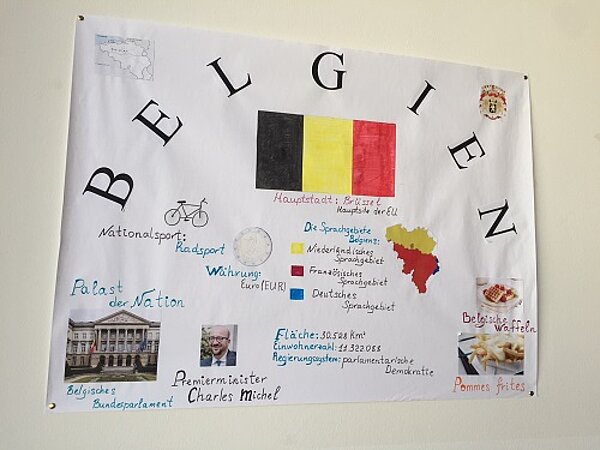 BELGIEN
Hauptstadt: Brüssel
Hauptsitz der EU
Nationalsport:
Radsport
Währung:
Euro (EUR)
Die Sprachgebiete
Belgiens:
Niederländisches
Sprachgebiet
Französisches
Sprachgebiet
Deutsches
Sprachgebiet
Palast
der Nation
Belgisches
Bundesparlament
Premierminister
Charles Michel
Fläche: 30.528 Km²
Einwohnerzahl: 11.322.088
Regierungssystem: parlamentarische
Demokratie
Belgische
Waffeln
Pommes frites